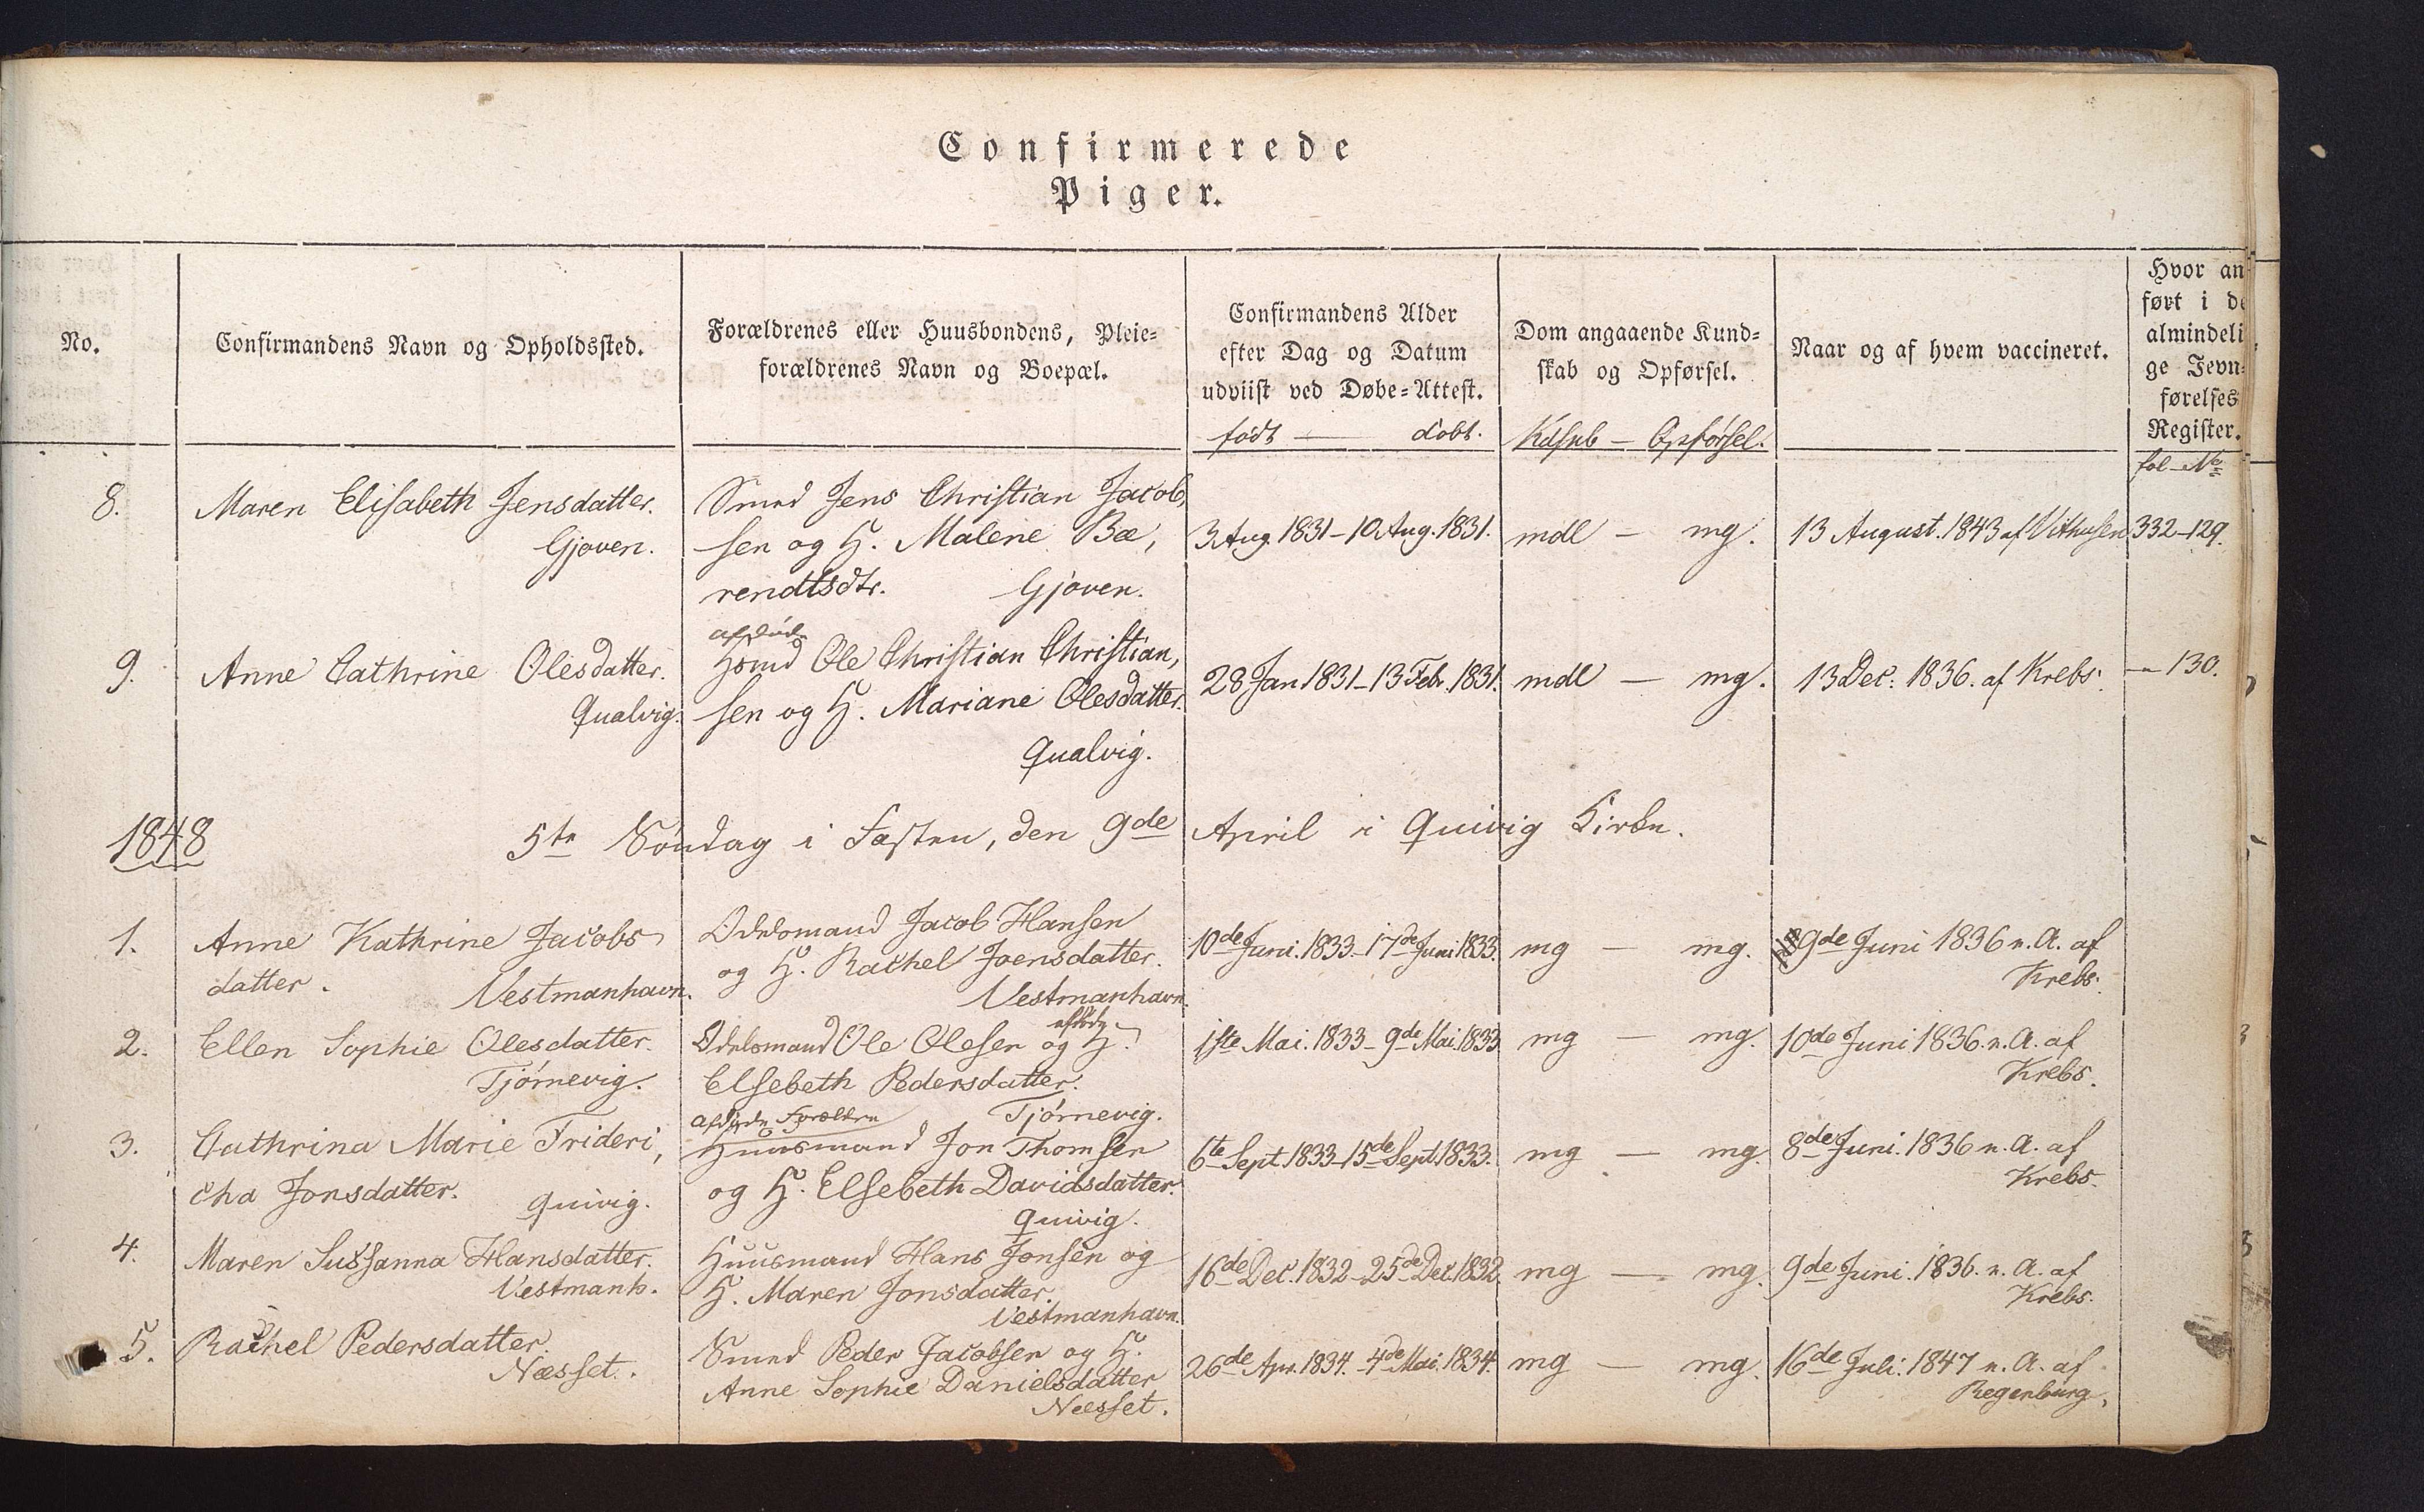 Confirmerede
Piger.
No.
Confirmandens Navn og Opholdssted.
Forældrenes eller Huusbondens, Pleie=
forældrenes Navn og Boepæl.
Confirmandens Alder
efter Dag og Datum
udviist ved Døbe=Attest.
født — døbt.
Dom angaaende Kund=
skab og Opførsel.
Kdskb — Opførsel.
Naar og af hvem vaccineret.
Hvor an
ført i de
almindeli
ge Jevn=
førelses
Register.
fol — No
8.
Maren Elisabeth Jensdatter.
Gjøven.
Smed Jens Christian Jacob,
sen og H. Malene Bæ,
rendtsdtr. Gjøven.
3 Aug. 1831 – 10 Aug. 1831.
mdl — mg.
13 August. 1843 af Vithusen
332–129.
9.
Anne Cathrine Olesdatter.
Qualvig.
afdøde
Hsmd Ole Christian Christian,
sen og H. Mariane Olesdatter.
Qualvig.
28 Jan 1831 – 13 Feb. 1831.
mdl — mg.
13 Dec. 1836. af Krebs.
—" 130.
1848
5te Søndag i Fasten, den 9de April i Quivig Kirke.
1.
Anne Kathrine Jacobs
datter. Vestmanhavn.
Odelsmand Jacob Hansen
og H. Rachel Joensdatter.
Vestmanhavn.
10de Juni. 1833 – 17de Juni 1833.
mg — mg.
9de Juni 1836 n. A. af
Krebs.
2.
Ellen Sophie Olesdatter.
Tjørnevig.
afdøde
Odelsmand Ole Olesen og H.
Elsebeth Pedersdatter.
Tjørnevig.
1ste Mai. 1833 – 9de Mai. 1833
mg — mg.
10de Juni 1836. n. A. af
Krebs.
3.
Cathrina Marie Frideri,
cha Jonsdatter. Quivig.
afdøde Forældre
Huusmand Jon Thomsen
og H. Elsebeth Davidsdatter.
Quivig.
6te Sept. 1833 – 15de Sept. 1833.
mg — mg.
8de Juni. 1836 n. A. af
Krebs.
4.
Maren Sussanna Hansdatter.
Vestmanh.
Huusmand Hans Jonsen og
H. Maren Jonsdatter.
Vestmanhavn.
16de Dec. 1832 – 25de Dec. 1832.
mg — mg.
9de Juni. 1836. n. A. af
Krebs.
5.
Rachel Pedersdatter.
Næsset.
Smed Peder Jacobsen og H.
Anne Sophie Danielsdatter
Næsset.
26de Apr. 1834. – 4de Mai. 1834.
mg — mg.
16de Juli. 1847 n. A. af
Regenburg.